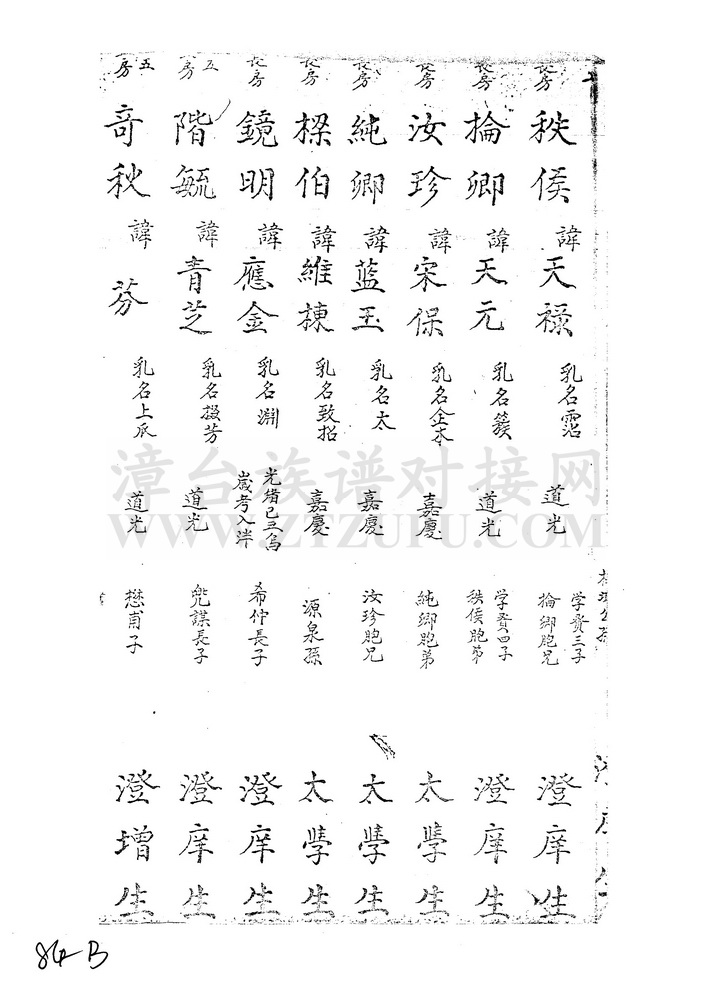 長房 秩侯 諱 天祿 乳名霑 道光 掄卿胞兄 学賢三子 澄庠生
長房 掄卿 諱 天元 乳名簇 道光 秩侯胞弟 学賢四子 澄庠生
長房 汝珍 諱 宋保 乳名企本 嘉慶 純卿胞弟 太學生
長房 純卿 諱 蓝玉 乳名太 嘉慶 汝珍胞兄 太學生
長房 樑伯 諱 維棟 乳名致招 嘉慶 源泉孫 太學生
長房 鏡明 諱 應金 乳名渊 光緒己 歲考入泮 希仲長子 澄庠生
五房 階毓 諱 青芝 乳名掇芳 道光 兆謀長子 澄庠生
五房 奇秋 諱 芬 乳名上瓜 道光 懋 子 澄增生
漳台族谱对接网
WWW.ZTZUPU.COM
84-B